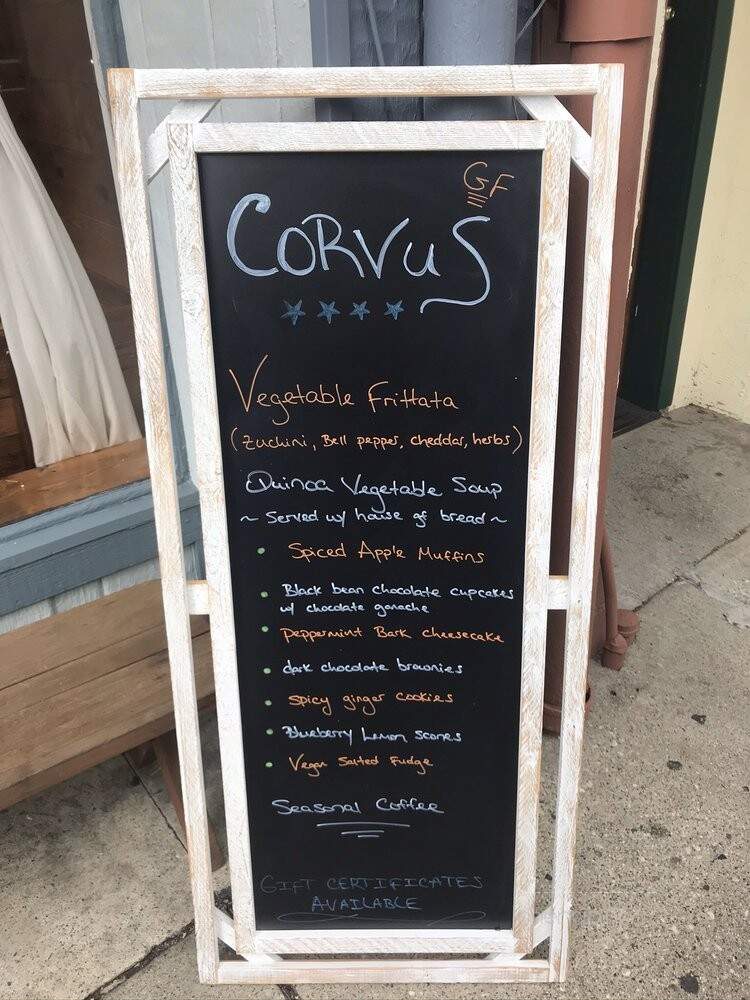 GF
CORVUS
Vegetable Frittata
(Zuchini, Bell pepper, cheddar, herbs)
Quinoa Vegetable Soup
~ Served w/ house gf bread ~
• Spiced Apple Muffins
• Black bean chocolate cupcakes
w/ chocolate ganache
• Peppermint Bark cheesecake
• dark chocolate brownies
• Spicy ginger cookies
• Blueberry Lemon scones
• Vegan Salted Fudge
Seasonal Coffee
GIFT CERTIFICATES
AVAILABLE